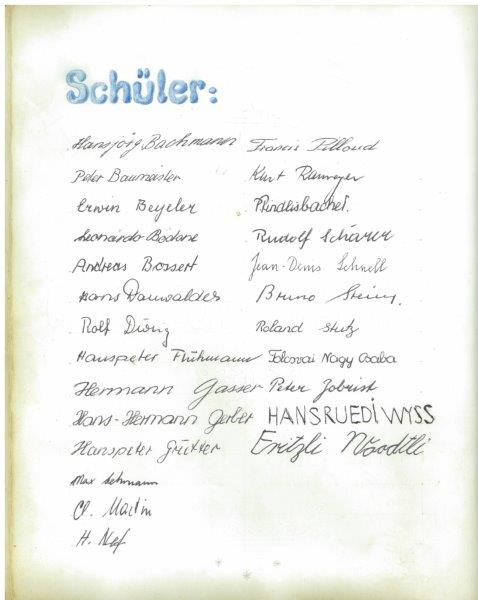 Schüler:
Hansjörg Bachmann
Peter Baumeister
Erwin Beyeler
Leonardo Bedene
Andreas Bossert
Hans Dauwalder
Rolf Düng
Hanspeter Fluhmann
Hermann Gasser
Hans-Hermann Gerber
Hanspeter Grütter
Max Lehmann
Cl. Martin
H. Nef
Francis Pilloud
Kurt Ramseyer
Rudolf Schärer
Jean-Denis Schnell
Bruno
Roland Stutz
Tolcsvai Nagy Csaba
Peter Zobrist
HANSRUEDI WYSS
Fritzli Woodtli